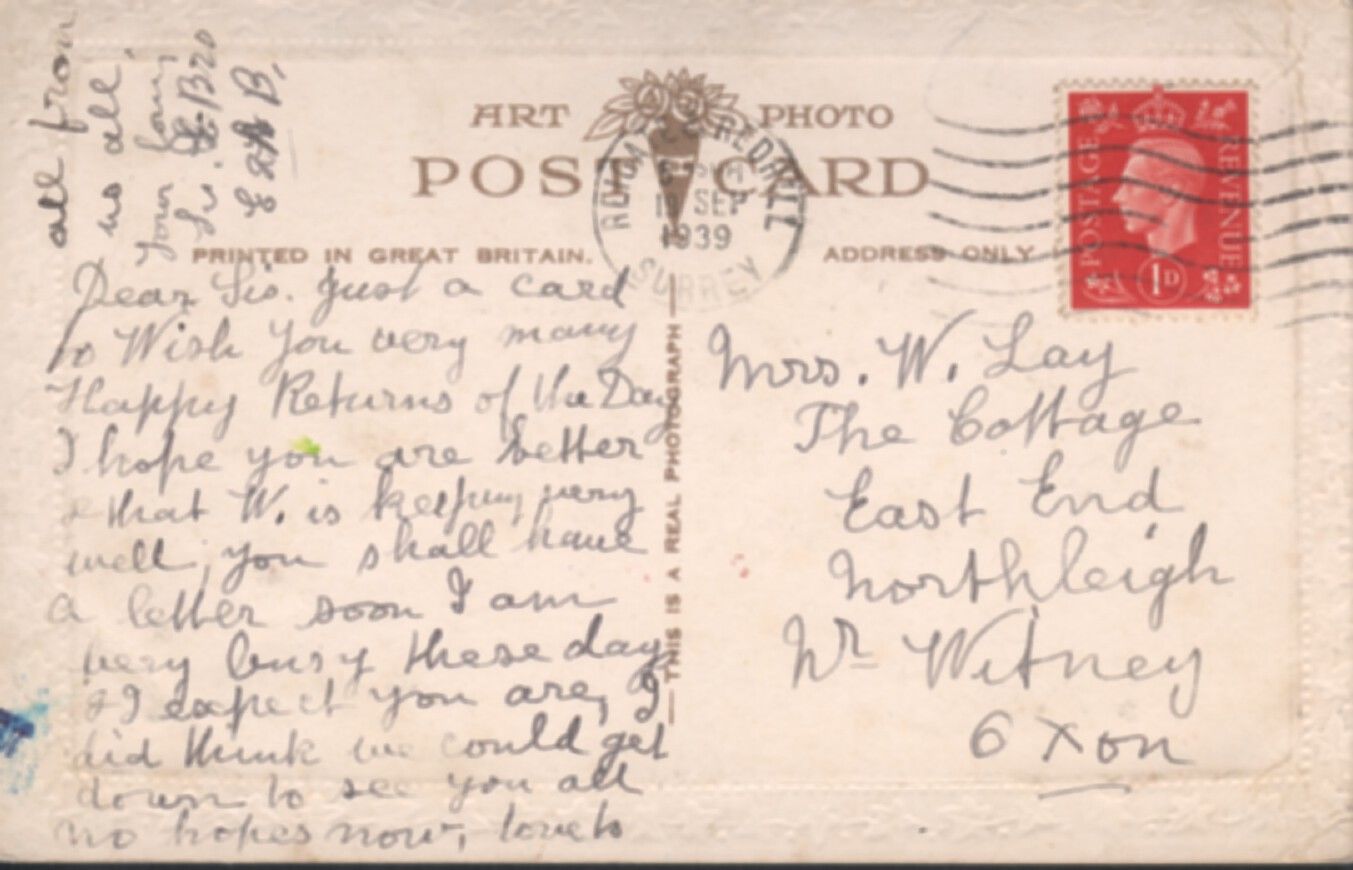 ART PHOTO
POST CARD
PRINTED IN GREAT BRITAIN.
ADDRESS ONLY
REDHILL
SEP
1939
SURREY
POSTAGE
REVENUE
1D
THIS IS A REAL PHOTOGRAPH
Dear Sis. Just a card
to Wish You very many
Happy Returns of the Day
I hope you are better
& that W. is keeping very
well, you shall have
a letter soon I am
very busy these days
& I expect you are, I
did think we could get
down to see you all
no hopes now, love to
all from
us all,
Your loving
Bro
E B,
Mrs. W. Lay
The Cottage
East End
Northleigh
Nr Witney
Oxon